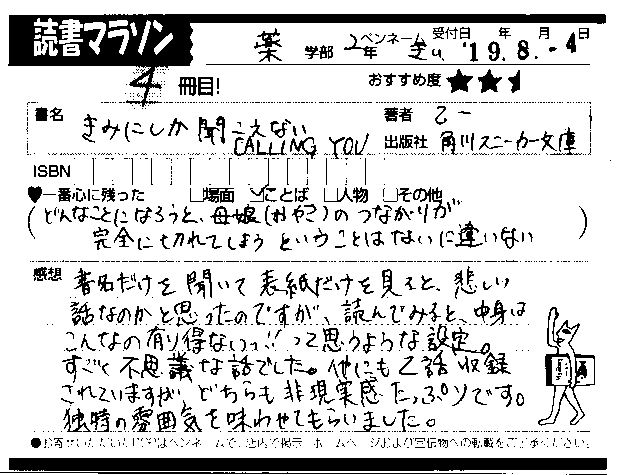 読書マラソン
薬 学部 2年 ペンネーム 受付日 '19.年8.月-4日
4冊目! おすすめ度 ★★
書名 きみにしか聞こえない 著者 乙一
CALLING YOU 出版社 角川スニーカー文庫
ISBN
♥一番心に残った □場面 ☑ことば □人物 □その他
(どんなことになろうと、母娘(おやこ)のつながりが
完全に切れてしまうということはないに違いない)
感想 書名だけを聞いて表紙だけを見ると、悲しい
話なのかと思ったのですが、読んでみると、中身は
こんなの有り得ないっ!!って思うような設定。
すごく不思議な話でした。他にも2話収録
されていますが、どちらも非現実感たっぷりです。
独特の雰囲気を味わせてもらいました。
●お寄せいただいた はペンネームで、店内で掲示 ホームページおよび宣伝物への転載をご了承ください。